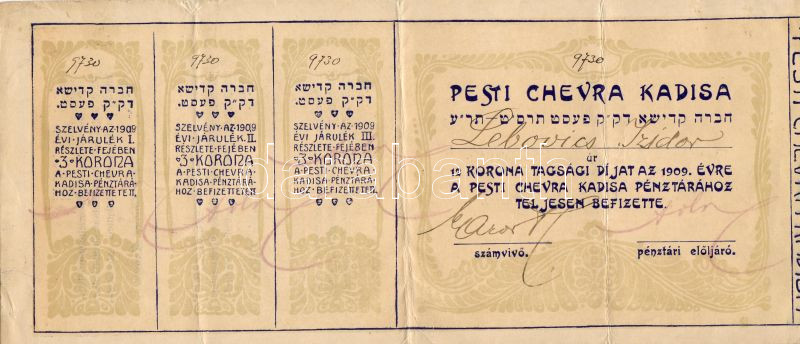 9730
חברה קדישא
דק״ק פעסט.
SZELVÉNY·AZ·1909
ÉVI·JÁRULÉK I.
RÉSZLETE·FEJÉBEN
·3·KORONA
A·PESTI·CHEVRA
KADISA·PÉNZTÁRÁ-
HOZ·BEFIZETTETETT.
9730
חברה קדישא
דק״ק פעסט.
SZELVÉNY·AZ·1909
ÉVI·JÁRULÉK II.
RÉSZLETE·FEJÉBEN
·3·KORONA
A·PESTI·CHEVRA
KADISA·PÉNZTÁRÁ-
HOZ·BEFIZETTETETT.
9730
חברה קדישא
דק״ק פעסט.
SZELVÉNY·AZ·1909
ÉVI·JÁRULÉK III.
RÉSZLETE·FEJÉBEN
·3·KORONA
A·PESTI·CHEVRA
KADISA·PÉNZTÁRÁ-
HOZ·BEFIZETTETETT.
9730
PESTI CHEVRA KADISA
חברה קדישא דק״ק פעסט תרס״ט־תר״ע
Lebovics Izidor
úr
12 KORONA TAGSÁGI DÍJAT AZ 1909. ÉVRE
A PESTI CHEVRA KADISA PÉNZTÁRÁHOZ
TELJESEN BEFIZETTE.
számvivő. pénztári előljáró.